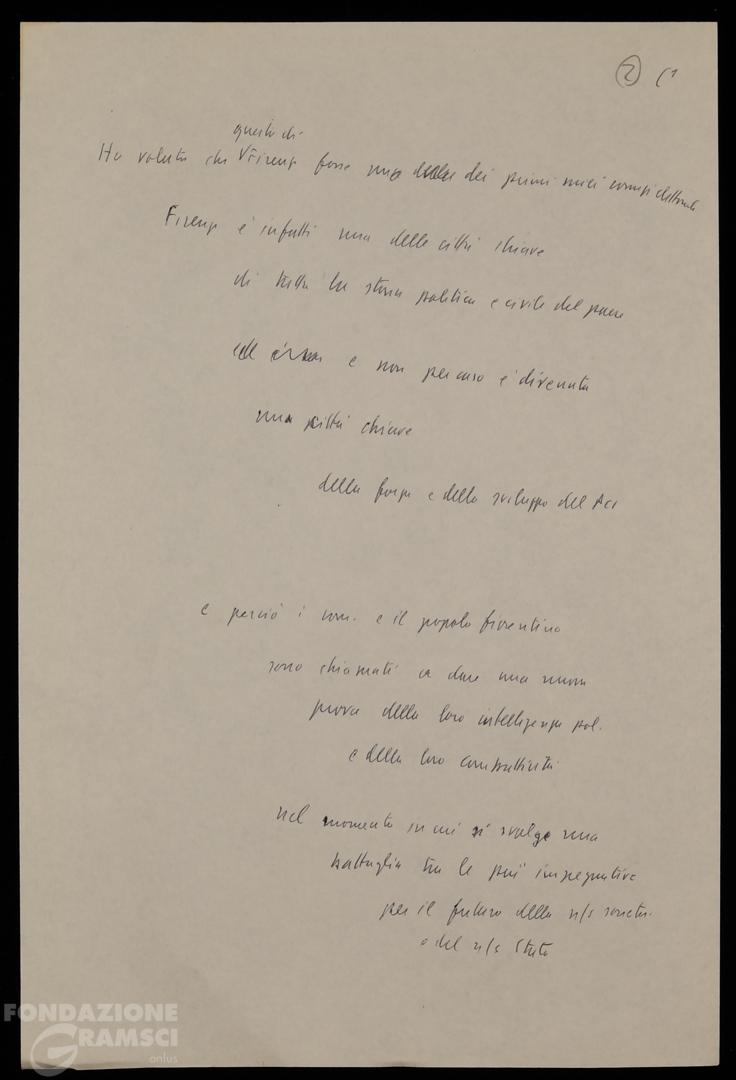 2
questo di
Ho voluto che Firenze fosse uno dei primi miei comizi elettorali
Firenze è infatti una delle città chiave
di tutta la storia politica e civile del paese
ed e non per caso è divenuta
una città chiave
della forza e dello sviluppo del Pci
e perciò i com. e il popolo fiorentino
sono chiamati a dare una nuova
prova della loro intelligenza pol.
e della loro combattività
nel momento in cui si svolge una
battaglia tra le più impegnative
per il futuro della n/s società
e del n/s Stato
FONDAZIONE
GRAMSCI
onlus